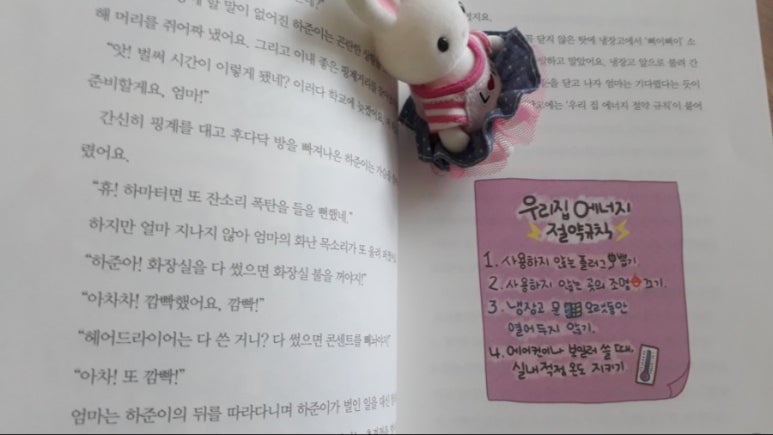 할 말이 없어진 하준이는 곤란한
해 머리를 쥐어짜 냈어요. 그리고 이내 좋은 핑계거리를
“앗! 벌써 시간이 이렇게 됐네? 이러다 학교에 늦겠어요.
준비할게요, 엄마!”
간신히 핑계를 대고 후다닥 방을 빠져나온 하준이는 가슴을
렸어요.
“휴! 하마터면 또 잔소리 폭탄을 들을 뻔했네.”
하지만 얼마 지나지 않아 엄마의 화난 목소리가 또 울려
“하준이! 화장실을 다 썼으면 화장실 불을 꺼야지!”
“아차차! 깜빡했어요, 깜빡!”
“헤어드라이어는 다 쓴 거니? 다 썼으면 콘센트를 빼놔야지!”
“아차! 또 깜빡!”
엄마는 하준이의 뒤를 따라다니며 하준이가 벌인 일을 대신
닫지 않은 탓에 냉장고에서 ‘삐이삐이’ 소
말았어요. 냉장고 앞으로 불려 간
문을 닫고 나자 엄마는 기다렸다는 듯이
‘우리 집 에너지 절약 규칙’이 붙어
우리집 에너지
절약규칙
1. 사용하지 않는 플러그 뽑기.
2. 사용하지 않는 곳의 조명 끄기.
3. 냉장고 문 오랫동안
열어 두지 않기.
4. 에어컨이나 보일러 쓸 때,
실내 적정 온도 지키기